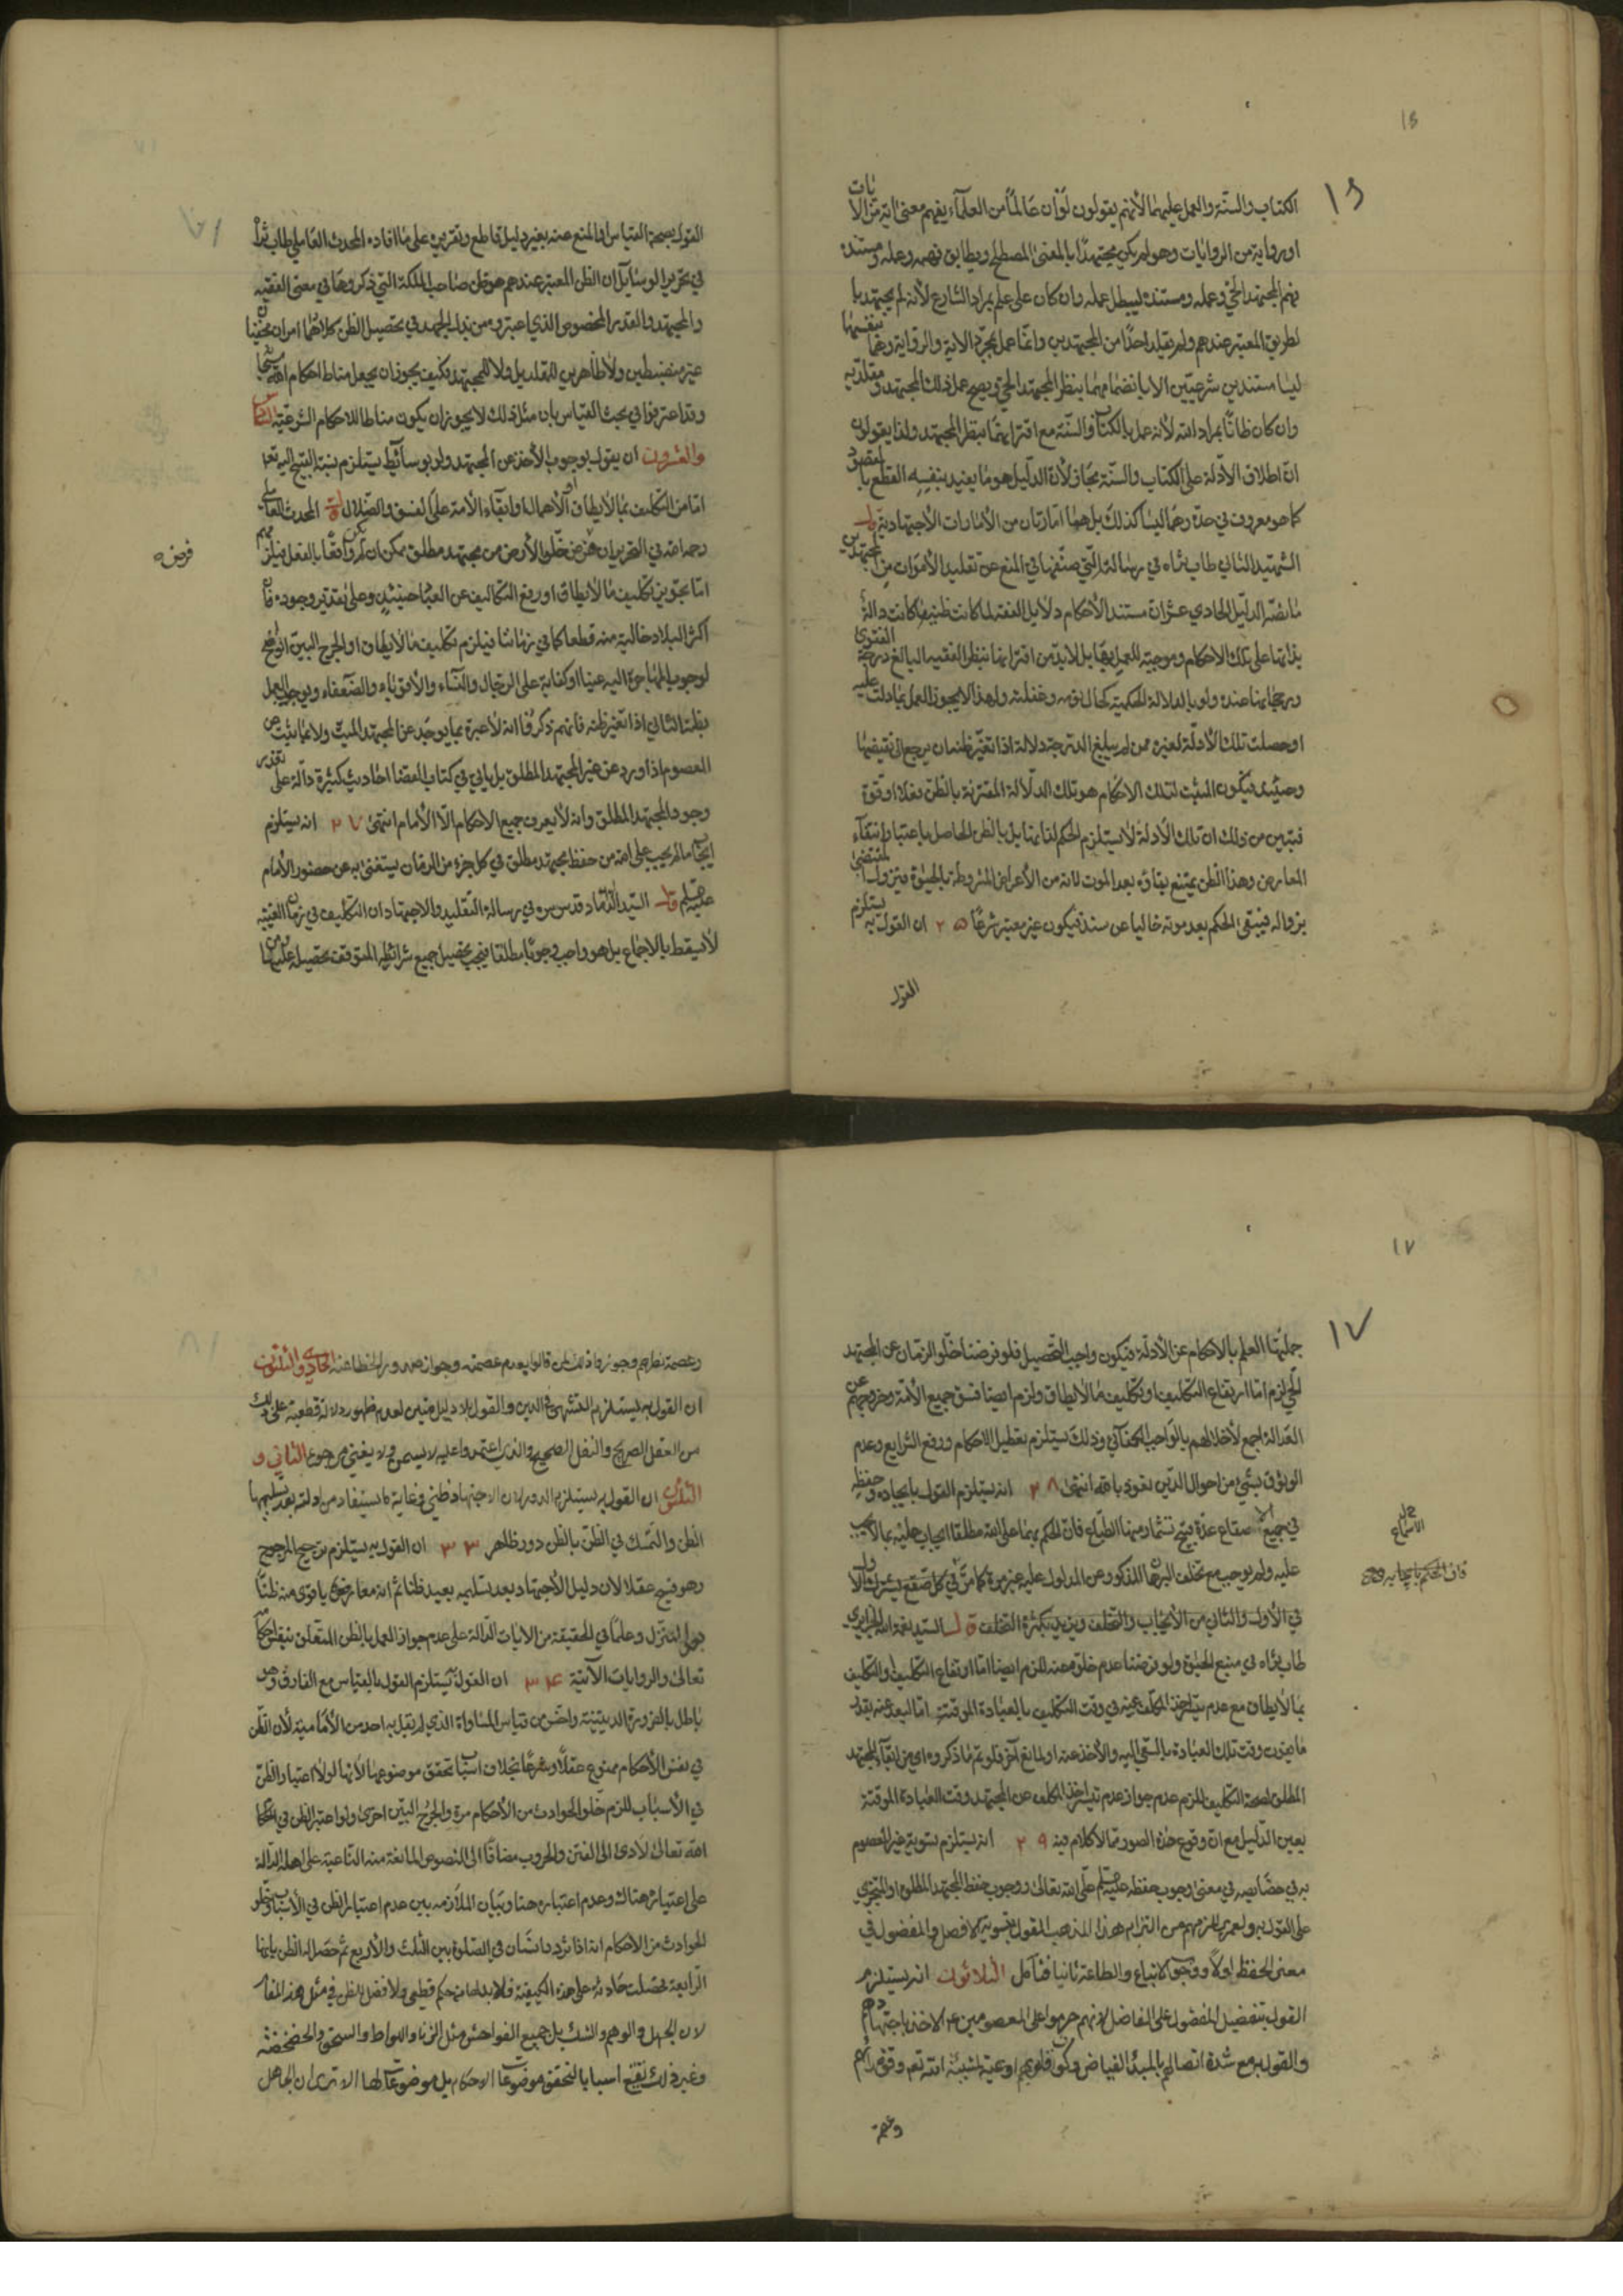 الكتاب والسنة والعمل عليهما لأنهم يقولون لو أن عالماً من العلماء يفهم معنى اية من الايات
او رواية من الروايات وهو لم يكن مجتهداً بالمعنى المصطلح ويطابق فهمه وعمله ومستنده
فهم المجتهد الحي وعمله ومستنده ليبطل عمله وان كان على علم بمراد الشارع لأنه لم يجتهد با
لطريق المعتبر عندهم ولم يقلد احداً من المجتهدين وانما عمل بمجرد الاية والرواية وهما بنفسهما
ليسا مستندين شرعيين الا بانضمامهما بنظر المجتهد الحي ويصح عمل ذلك المجتهد ومقلديه
وان كان ظاناً بمراد الله لأنه عمل بالكتاب والسنة مع اقترانهما بنظر المجتهد ولذا يقولون
ان اطلاق الأدلة على الكتاب والسنة مجاز لأن الدليل هو ما يفيد بنفسه القطع بالمقصود
كما هو معروف في حده وهما ليسا كذلك بل هما امارتان من الأمارات الأجتهادية قال
الشهيد الثاني طاب ثراه في رسالته التي صنفها في المنع عن تقليد الأموات من المجتهدين
ما نصه الدليل الحادي عشر ان مستند الأحكام دلايل الفقه لما كانت ظنية كانت دالة
بذاتها على تلك الأحكام وموجبة للعمل بها بل لابد من اقترانها بنظر الفقيه البالغ درجة الفتوى
ورجحانها عنده ولو بالدلالة الحكمية كحال نومه وغفلته ولهذا لا يجوز العمل بما دلت عليه
او حصلت تلك الأدلة لغيره ممن لم يبلغ الدرجة دلالة اذا تغير ظنه ان يرجع الى نقيضها
وحينئذ فيكون المثبت لتلك الاحكام هو تلك الدلالة المقترنة بالظن فعلاً او قوة
فتبين من ذلك ان تلك الأدلة لا يستلزم الحكم لذاتها بل بالظن الحاصل باعتبار انتفاء
المعارض وهذا الظن يمتنع بقاؤه بعد الموت لانه من الأعراض المشروطة بالحيوة فيزول المقتضى
بزواله فيبقى الحكم بعد موته خاليا عن سند فيكون غير معتبر شرعاً ٢٥ ان القول به يستلزم
القول
القول بصحة القياس او المنع عنه بغير دليل قاطع وتقريره على ما افاده المحدث العاملي طاب ثراه
في تحرير الوسايل ان الظن المعتبر عندهم هو ظن صاحب الملكة التي ذكروها في معنى الفقيه
والمجتهد والقدر المخصوص الذي اعتبروه من بذل الجهد في تحصيل الظن كلاهما امران مخفيان
غير منضبطين ولا ظاهرين للمقلد بل ولا للمجتهد فكيف يجوز ان يجعل مناط احكام الله سبحانه
وقد اعترفوا في بحث القياس بان مثل ذلك لا يجوز ان يكون مناطا للاحكام الشرعية السادس
والعشرون ان يقول بوجوب الأخذ عن المجتهد ولو بوسائط يستلزم نسبة القبيح اليه تعالى
اما من التكليف بما لا يطاق او الأهمال او ابقاء الأمة على الفسق والضلال قال المحدث العاملي
رحمه الله في التحرير ان فرض خلو الأرض من مجتهد مطلق ممكن ان لم يكن واقعا بالفعل فيلزمهم
اما تجويز تكليف ما لا يطاق او رفع التكاليف عن العباد حينئذ وعلى تقدير وجوده فان
اكثر البلاد خالية منه قطعا كما في زماننا فيلزم تكليف ما لا يطاق او الحرج البين الواضح
لوجوب المهاجرة اليه عينا او كفاية على الرجال والنساء والأقوياء والضعفاء ويوجب العمل
بظنه الثاني اذا تغير ظنه فانهم ذكروا انه لا عبرة بما يوجد عن المجتهد الميت ولا بما يثبت عن
المعصوم اذا ورد عن غير المجتهد المطلق بل يأتي في كتاب القضا احاديث كثيرة دالة على تعذر
وجود المجتهد المطلق وانه لا يعرف جميع الاحكام الا الأمام انتهى ٢٧ انه يستلزم
ايجاب ما لم يجب على الله من حفظ مجتهد مطلق في كل جزء من الزمان يستغنى به عن حضور الأمام
عليه السلم قال السيد الداماد قدس سره في رسالة التقليد والاجتهاد ان التكليف في زمان الغيبة
لا يسقط بالاجماع بل هو واجب وجوبا مطلقا فيجب تحصيل جميع شرائطه المتوقفة تحصيله عليها ومن
فرض ه
١٧
جملتها العلم بالاحكام عن الأدلة فيكون واجب التحصيل فلو فرضنا خلو الزمان عن المجتهد
الحي لزم اما ارتفاع التكليف او تكليف ما لا يطاق ولزم ايضا فسق جميع الأمة وخروجهم عن
العدالة اجمع لأخلالهم بالواجب الكفائي وذلك يستلزم تعطيل الاحكام ورفع الشرايع وعدم
الوثوق بشيء من احوال الدين نعوذ بالله انتهى ٢٨ انه يستلزم القول بايجاده وحفظه
في جميع الاصقاع عدة قبيح تشمأز منها الطباع فان الحكم بهما على الله مطلقا ايجاب عليه بما لا يجب
عليه ولم يوجب مع تخلف البرهان المذكور عن المدلول عليه غير مرة كما مر في كل صقع يشترك الأول
في الأول والثاني من الأيجاب والتخلف ويزيد بكثرة التخلف قال السيد نعمة الله الجزايري
طاب ثراه في منبع الحيوة ولو فرضنا عدم خلوه عنه للزم ايضا اما ارتفاع التكليف او التكليف
بما لا يطاق مع عدم تيسر اخذ المكلف عنه في وقت التكليف بالعبادة الموقتة اما لبعد عنه بقدر
ما يفوت وقت تلك العبادة بالسعي اليه والأخذ عنه او لمانع آخر فلو تم ما ذكروه اي من ابقاء المجتهد
المطلق لصحة التكليف للزم عدم جواز عدم تيسر اخذ المكلف عن المجتهد وقت العبادة الموقتة
بعين الدليل مع ان وقوع هذه الصورة مما لا كلام فيه ٢٩ انه يستلزم تسوية غير المعصوم
به في خصايصه في معنى وجوب حفظه عليه السلم على الله تعالى ووجوب حفظ المجتهد المطلق او المتجزي
على القول به ولعمري للزمهم من التزام هذا المذهب القول بتسوية الافضل والمفضول في
معنى الحفظ اولاً ووجوب الاتباع والطاعة ثانيا فتأمل الثلاثون انه يستلزم
القول بتفضيل المفضول على الفاضل لانهم حرموا على المعصومين ع الاخذ باجتهادهم
والقول به مع شدة اتصالهم بالمبدأ الفياض وكون قلوبهم اوعية لمشيئة الله تعم وقوة رأيهم
وعصمة
محل الاسماع
فان الحكم بايجابه وحفظه
وعصمة نظرهم وجوزوا ذلك لمن قالوا بعدم عصمته وجواز صدور الخطا عنه الحادي والثلثون
ان القول به يستلزم التشهي في الدين والقول بلا دليل متين لعدم ظهور دلالة قطعية على ذلك
من العقل الصريح والنقل الصحيح والذي اعتمدوا عليه لا يسمن ولا يغني من جوع الثاني و
الثلثون ان القول به يستلزم الدور لان الاجتهاد ظني وغاية ما يستفاد من ادلته بعد تسليمها
الظن والتمسك في الظن بالظن دور ظاهر ٣٣ ان القول به يستلزم ترجيح المرجوح
وهو قبيح عقلا لان دليل الأجتهاد بعد تسليمه يفيد ظنا ثم انه معارض باقوى منه ظنا
على التنزل وعلماً في الحقيقة من الايات الدالة على عدم جواز العمل بالظن المتعلق بنفس احكامه
تعالى والروايات الآتية ٣٤ ان القول به يستلزم القول بالقياس مع الفارق وهو
باطل بالضرورة الدينية واخس من قياس المساواة الذي لم يقل به احد من الأمامية لأن الظن
في نفس الأحكام ممنوع عقلاً وشرعاً بخلاف اسباب تحقق موضوعها لأنها لولا اعتبار الظن
في الأسباب للزم خلو الحوادث من الأحكام مرة والحرج البين اخرى ولو اعتبر الظن في احكام
الله تعالى لادى الى الفتن والحروب مضافا الى النصوص المانعة منه الناعية على اهله الدالة
على اعتباره هناك وعدم اعتباره هنا وبيان الملازمة بين عدم اعتبار الظن في الأسباب وخلو
الحوادث من الاحكام انه اذا تردد انسان في الصلوة بين الثلث والأربع ثم حصل له الظن بانها
الرابعة فحصلت حادثة على هذه الكيفية فلابد لها من حكم قطعي ولا فضل للظن في مثل هذا المقام
لان الجهل والوهم والشك بل جميع الفواحش مثل الزنا واللواط والسحق والخضخضة
وغير ذلك تقع اسبابا لتحقق موضوعات الاحكام بل موضوعات لها الا ترى ان الجاهل